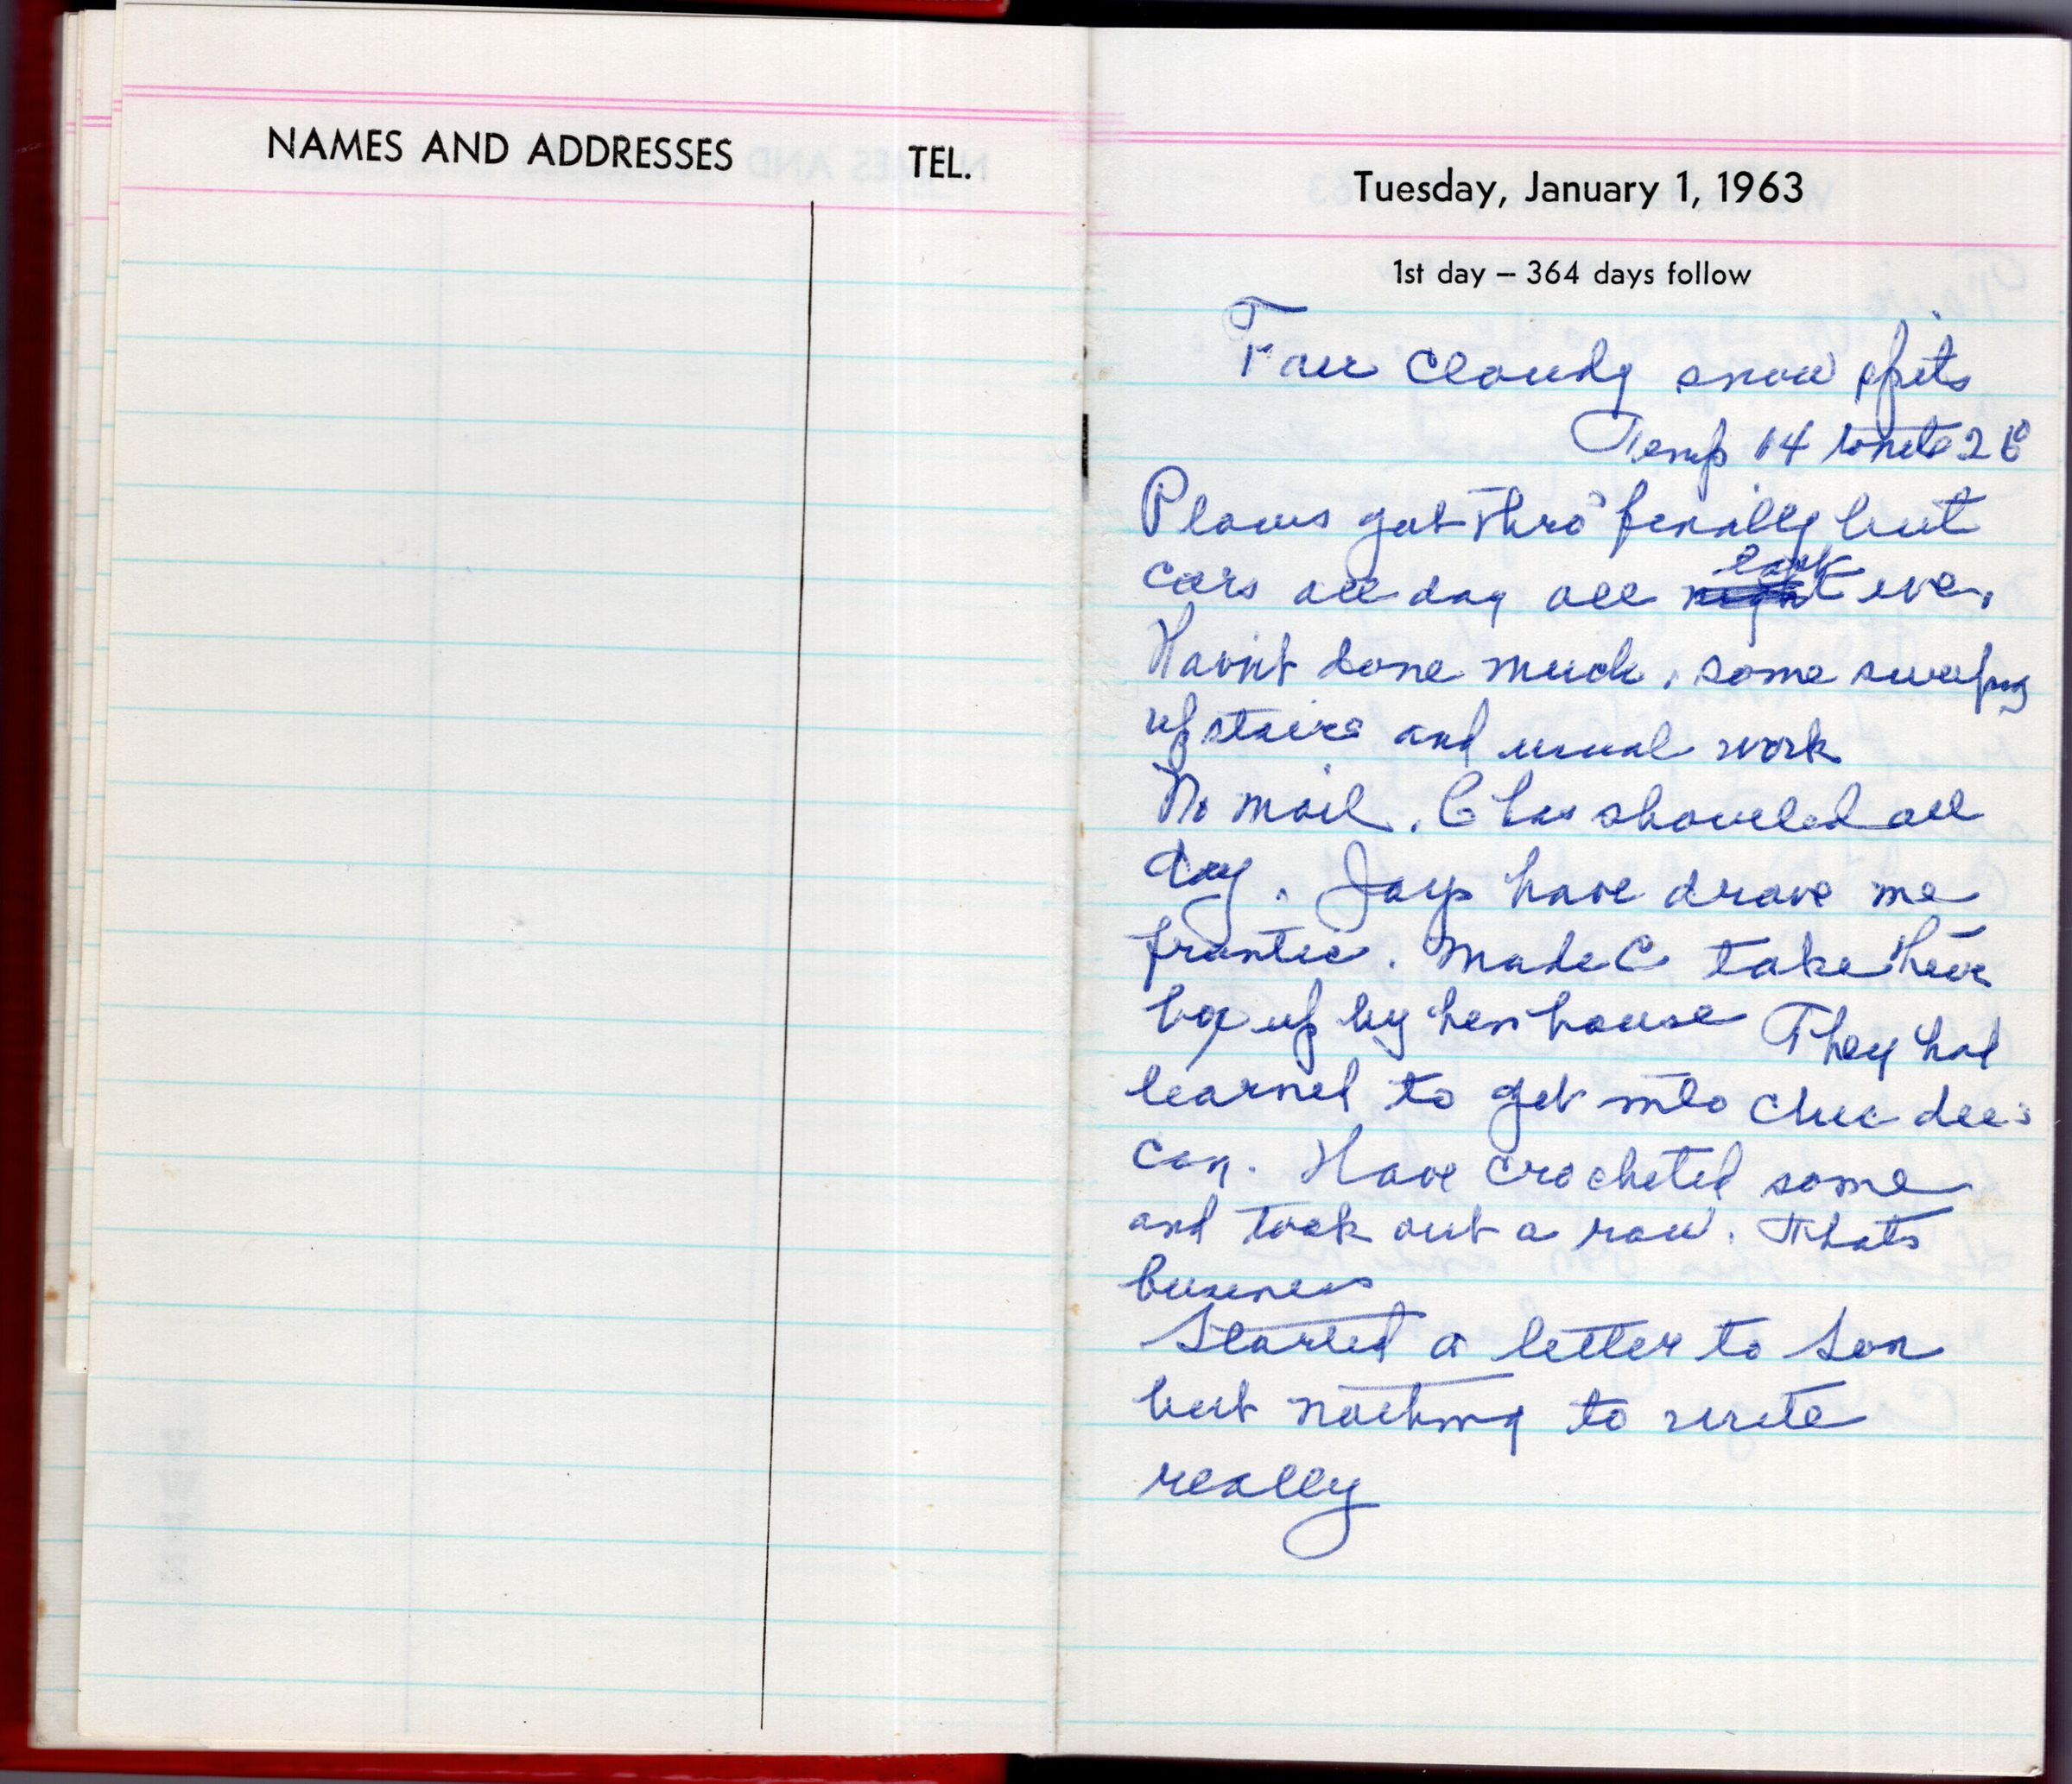 NAMES AND ADDRESSES TEL.
Tuesday, January 1, 1963
1st day – 364 days follow
Fair Cloudy snow spits
Temp 14 tonite
Plows got thro finally but
cars all day all last eve.
Havnt done much, some sweeping
upstairs and usual work
No mail. C has shoveled all
day. Jays have drove me
frantic. Made C take their
box up by hen house They had
learned to get into chic dees
can. Have crocheted some
and took out a row. Thats
business
Started a letter to Son
but nothing to write
really